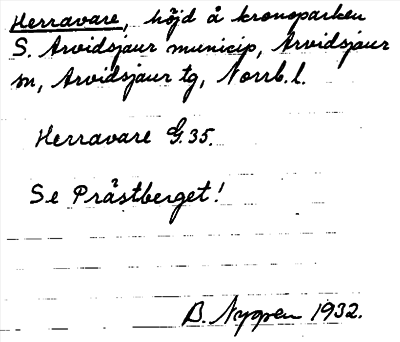 Herravare, höjd å kronoparken
S. Arvidsjaur municip, Arvidsjaur
sn, Arvidsjaur tg, Norrb. l.
Herravare G.35.
Se Prästberget!
B. Nygren 1932.